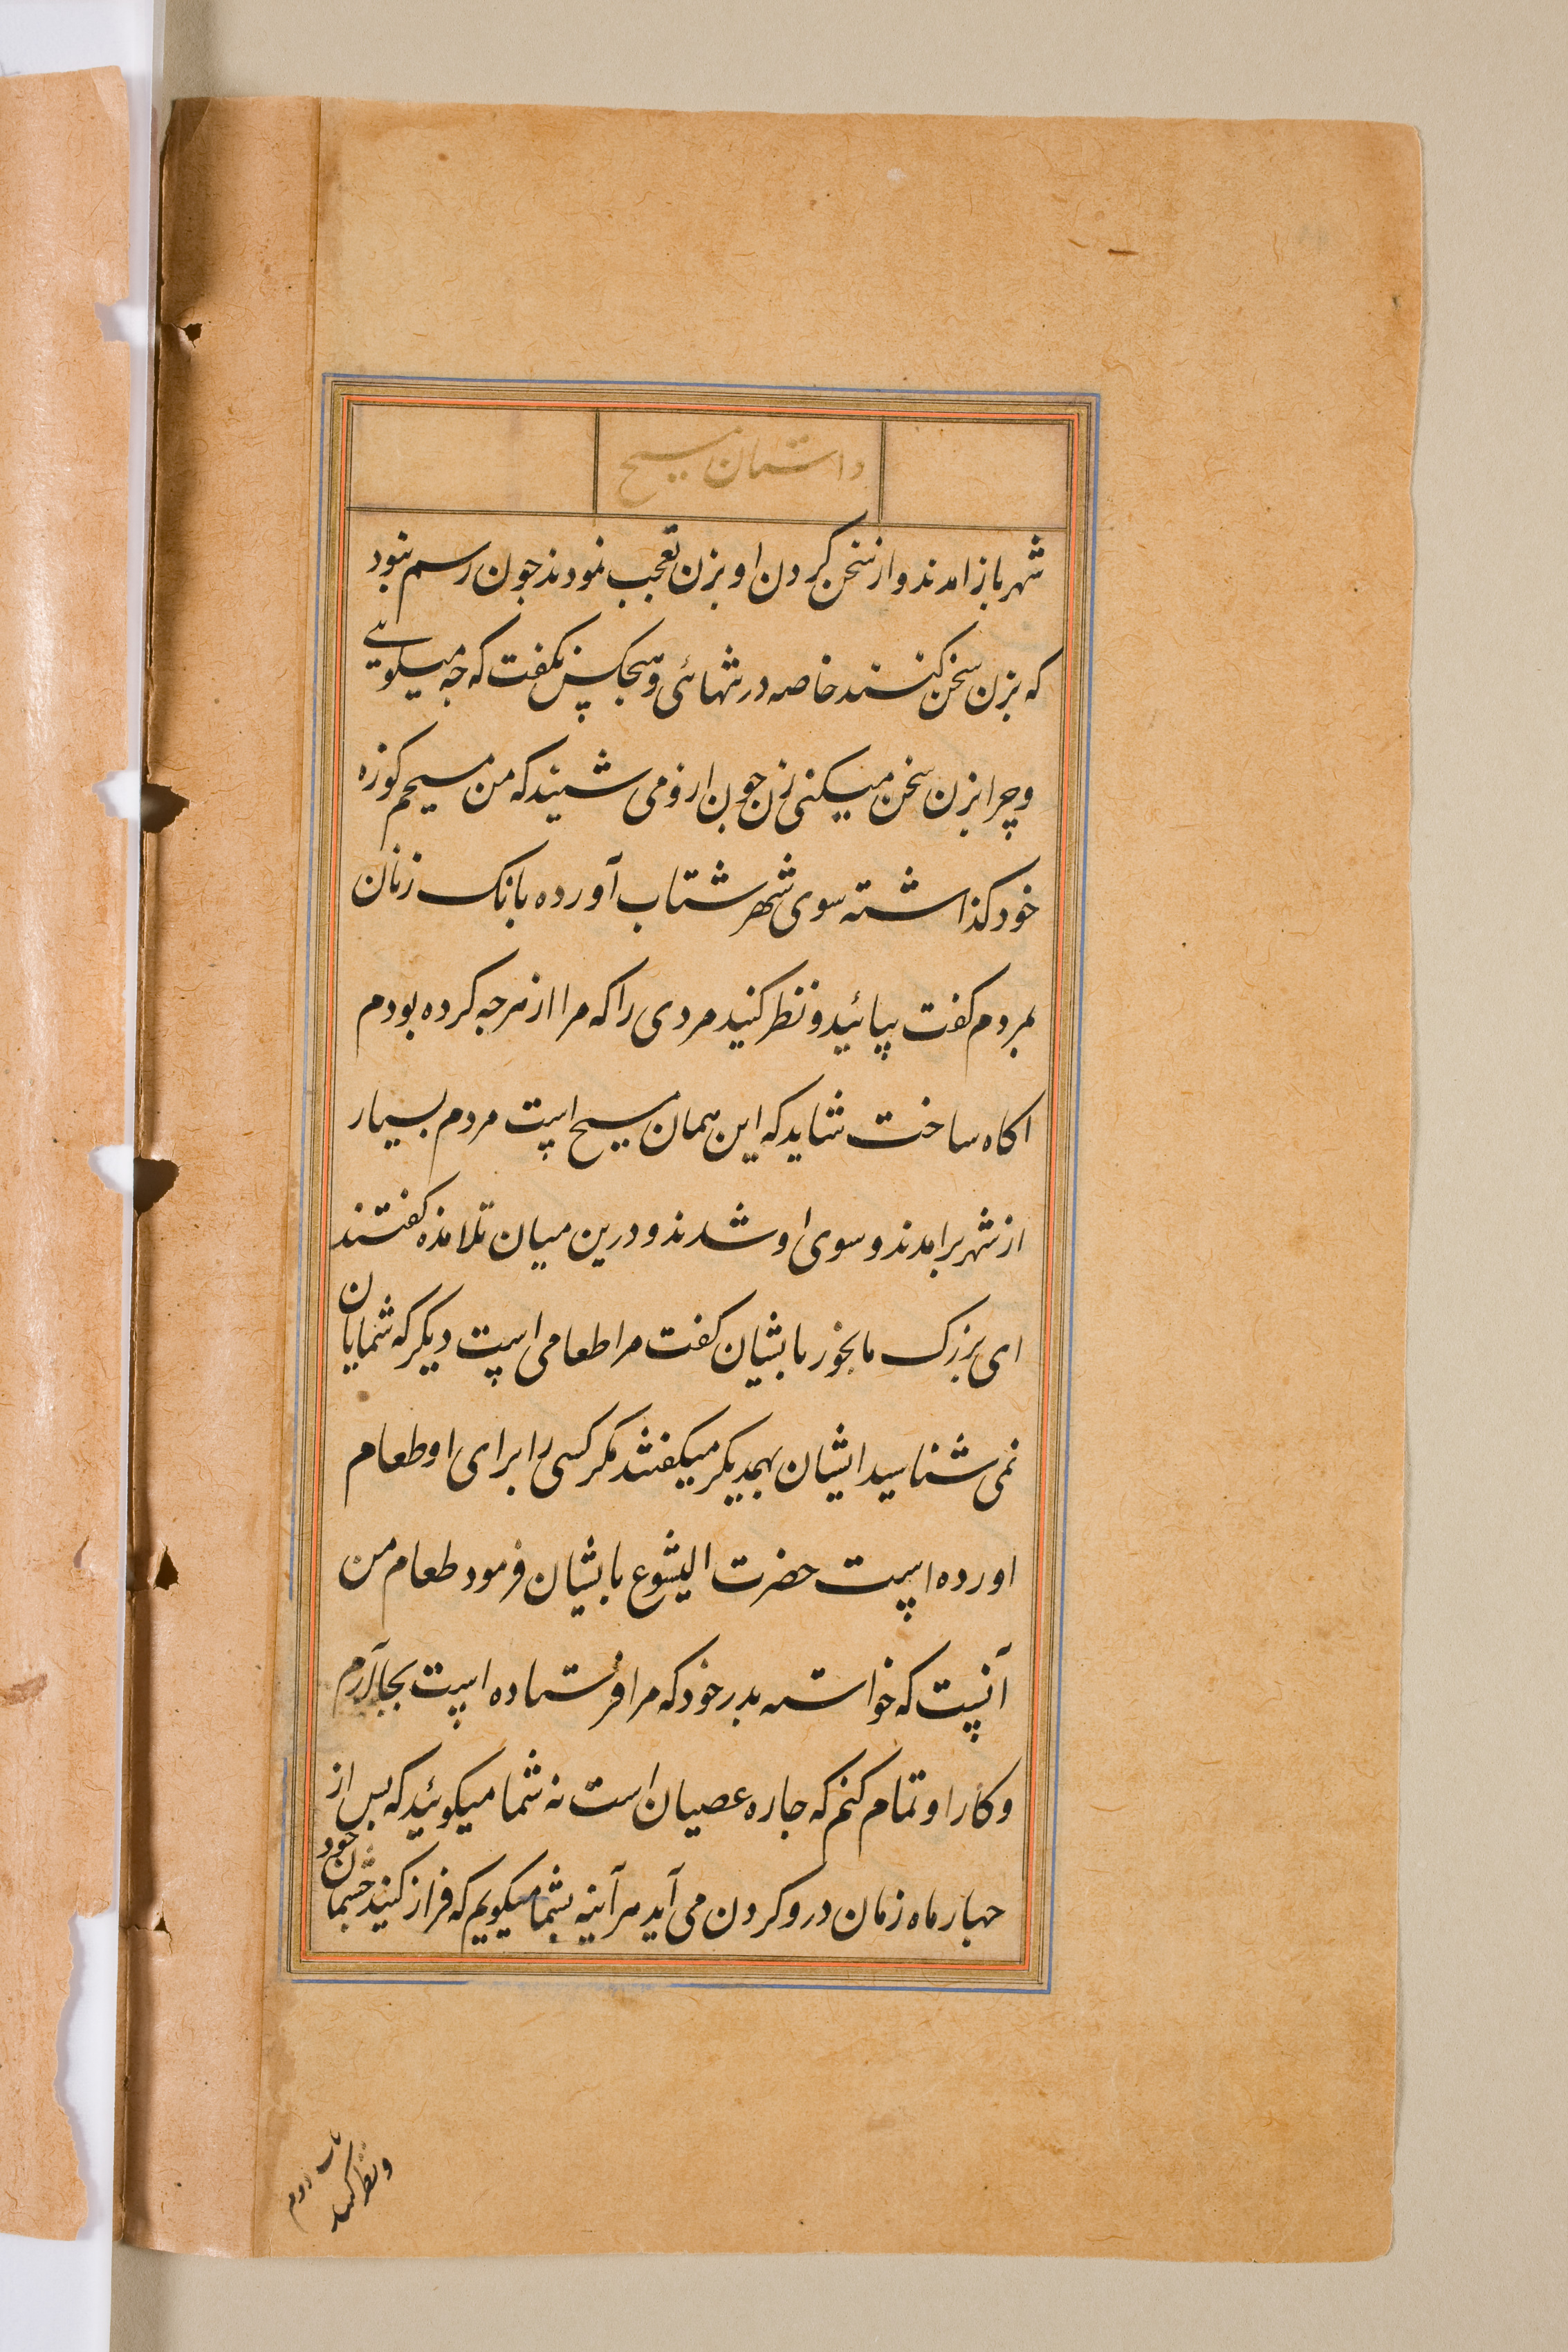 داستان مسیح
شهر باز امدند و از سخن کردن او بزن تعجب نمودند جون رسم نبود
که بزن سخن کنند خاصه در تنهائی و هیجکس نکفت که جه میکویی
و چرا بزن سخن میکنی زن جون ازو می شنید که من مسیحم کوزه
خود کذاشته سوی شهر شتاب آورده بانک زنان
بمردم کفت بیائید و نظر کنید مردی را که مرا از هر جه کرده بودم
اکاه ساخت شاید که این همان مسیح است مردم بسیار
از شهر برامدند و سوی او شدند و درین میان تلامذه کفتند
ای بزرک ما بخور بایشان کفت مرا طعامی است دیکر که شمایان
نمی شناسید ایشان بهمدیکر میکفتند مکر کسی را برای او طعام
اورده است حضرت ایشوع بایشان فرمود طعام من
آنست که خواسته بدر خود که مرا فرستاده است بجا آرم
و کار او تمام کنم که جاره عصیان است نه شما میکوئید که بس از
جهار ماه زمان درو کردن می آید هر آینه بشما میکویم که فراز کنید جشمان خود
و نظر کنید